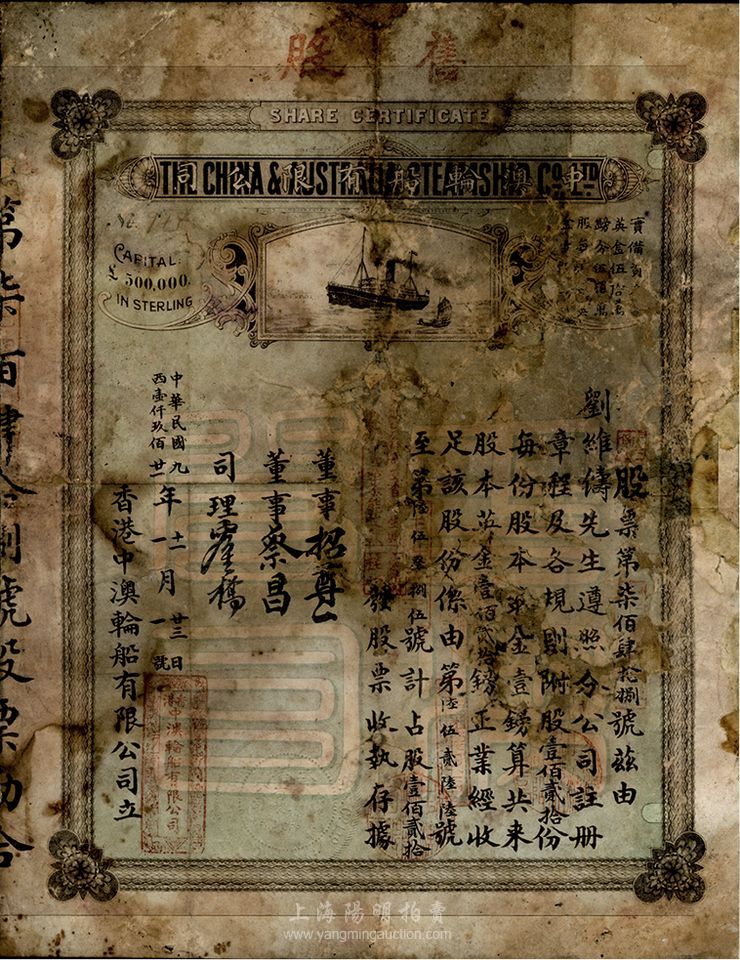 舊股
SHARE CERTIFICATE
THE CHINA & AUSTRALIA STEAMSHIP CO. LTD
中澳輪船有限公司
No.
CAPITAL:
£ 500,000.
IN STERLING
英金伍拾萬
鎊分伍拾萬
股票第柒佰肆拾捌號茲由
劉維儔先生遵照分公司註册
章程及各規則附股壹佰貳拾份
每份股本英金壹鎊算共来
股本英金壹佰貳拾鎊正業經收
足該股份係由第陸伍貳陸陸號
至第陸伍叁捌伍號計占股壹佰貳拾
發股票收執存據
董事招
董事蔡昌
司理
中華民國九年十一月廿三日
西壹仟玖佰廿一年一月一號
香港中澳輪船有限公司立
香港中澳輪船有限公司
第柒百肆拾捌號股票
上海陽明拍賣
www.yangmingauction.com